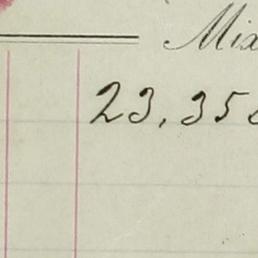 Mix
23,35